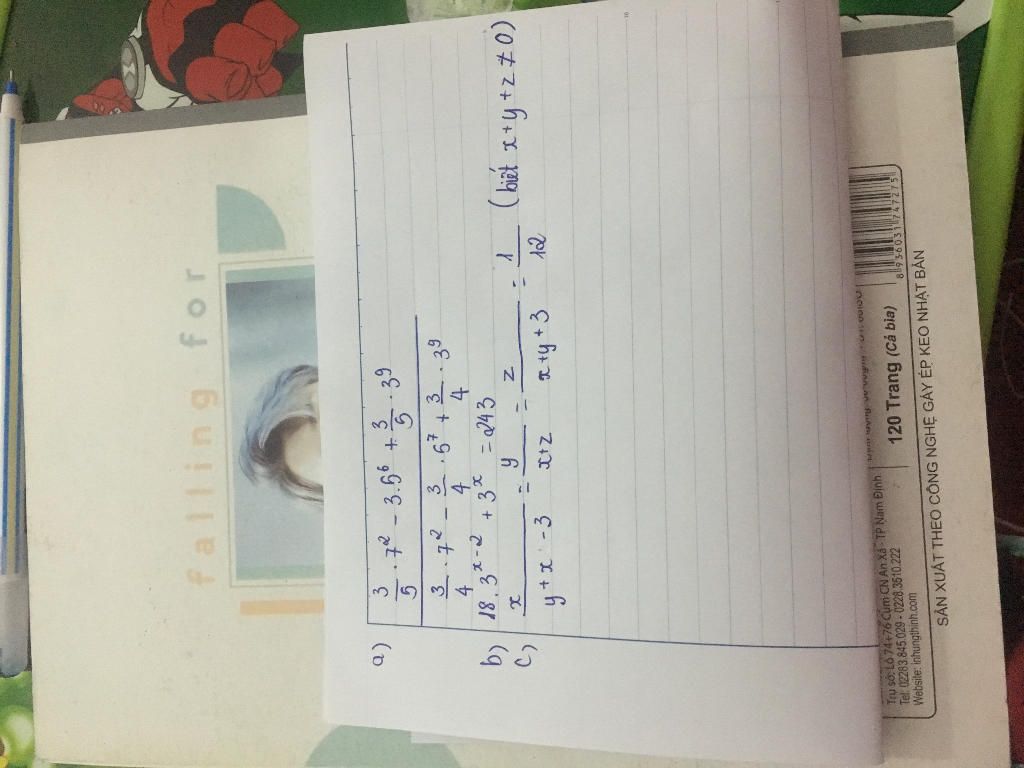 falling for
a) \frac{3}{5} . 7^2 - 3.5^6 + \frac{3}{5} . 3^9
\frac{3}{4} . 7^2 - \frac{3}{4} . 5^7 + \frac{3}{4} . 3^9
b) 18.3^{x-2} + 3^x = 243
c) \frac{x}{y+x-3} = \frac{y}{x+z} = \frac{z}{x+y+3} = \frac{1}{12} (biết x+y+z ≠ 0)
Trụ sở: Lô 74+76 Cụm CN An Xá - TP Nam Định
Tel: 02283.845.029 - 0228.3510.222
Website: inhungthinh.com
120 Trang (Cả bìa)
8 936031 747275
SẢN XUẤT THEO CÔNG NGHỆ GÁY ÉP KEO NHẬT BẢN